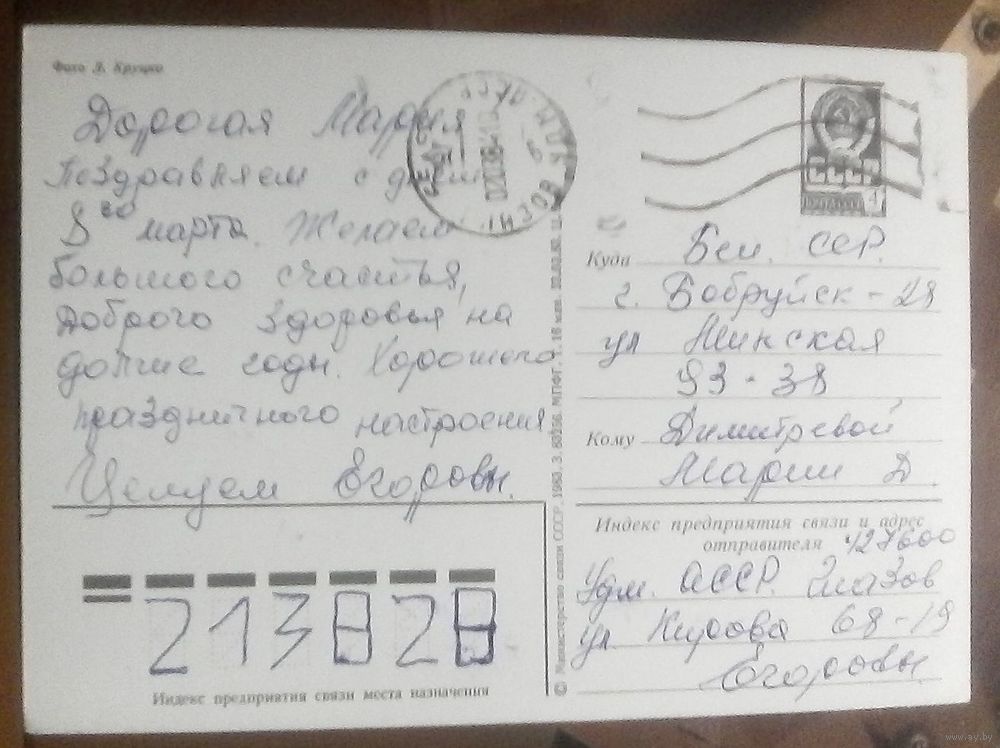 Фото Л. Круцко
Дорогая Мария
Поздравляем с днем
8го марта. Желаем
большого счастья,
доброго здоровья на
долгие годы. Хорошего
праздничного настроения
Целуем Егоровы.
СССР
4
Куда Бел. ССР.
г. Бобруйск-28
ул Минская
93-38
Кому Димитревой
Марии Д.
Индекс предприятия связи и адрес
отправителя 427600
Удм. АССР. Глазов
ул Кирова 68-19
Егоровы.
213828
Индекс предприятия связи места назначения
© Министерство связи СССР, 1983. З. МПФГ.
www.ay.by